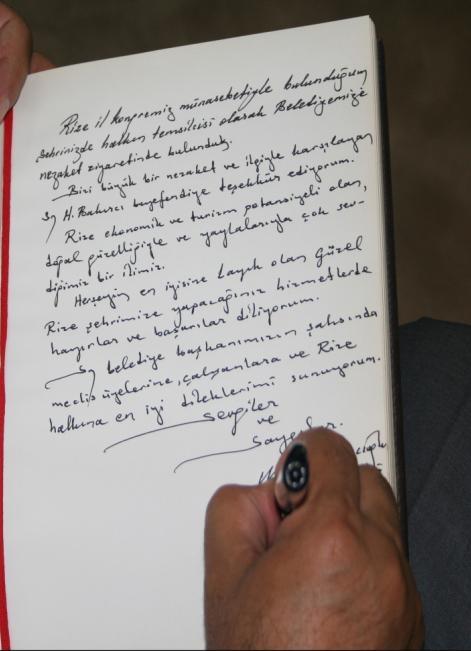 Rize il kongremiz münasebetiyle bulunduğum
şehrinizde halkın temsilcisi olarak Belediyemize
nezaket ziyaretinde bulunduk.
Bizi büyük bir nezaket ve ilgiyle karşılayan
Sn H. Bakırcı beyefendiye teşekkür ediyorum.
Rize ekonomik ve turizm potansiyeli olan,
doğal güzelliğiyle ve yaylalarıyla çok sev-
diğimiz bir ilimiz.
Herşeyin en iyisine layık olan güzel
Rize şehrimize yapacağınız hizmetlerde
hayırlar ve başarılar diliyorum.
Sn belediye başkanımızın şahsında
meclis üyelerine, çalışanlara ve Rize
halkına en iyi dileklerimi sunuyorum.
Sevgiler
ve
Saygılar.